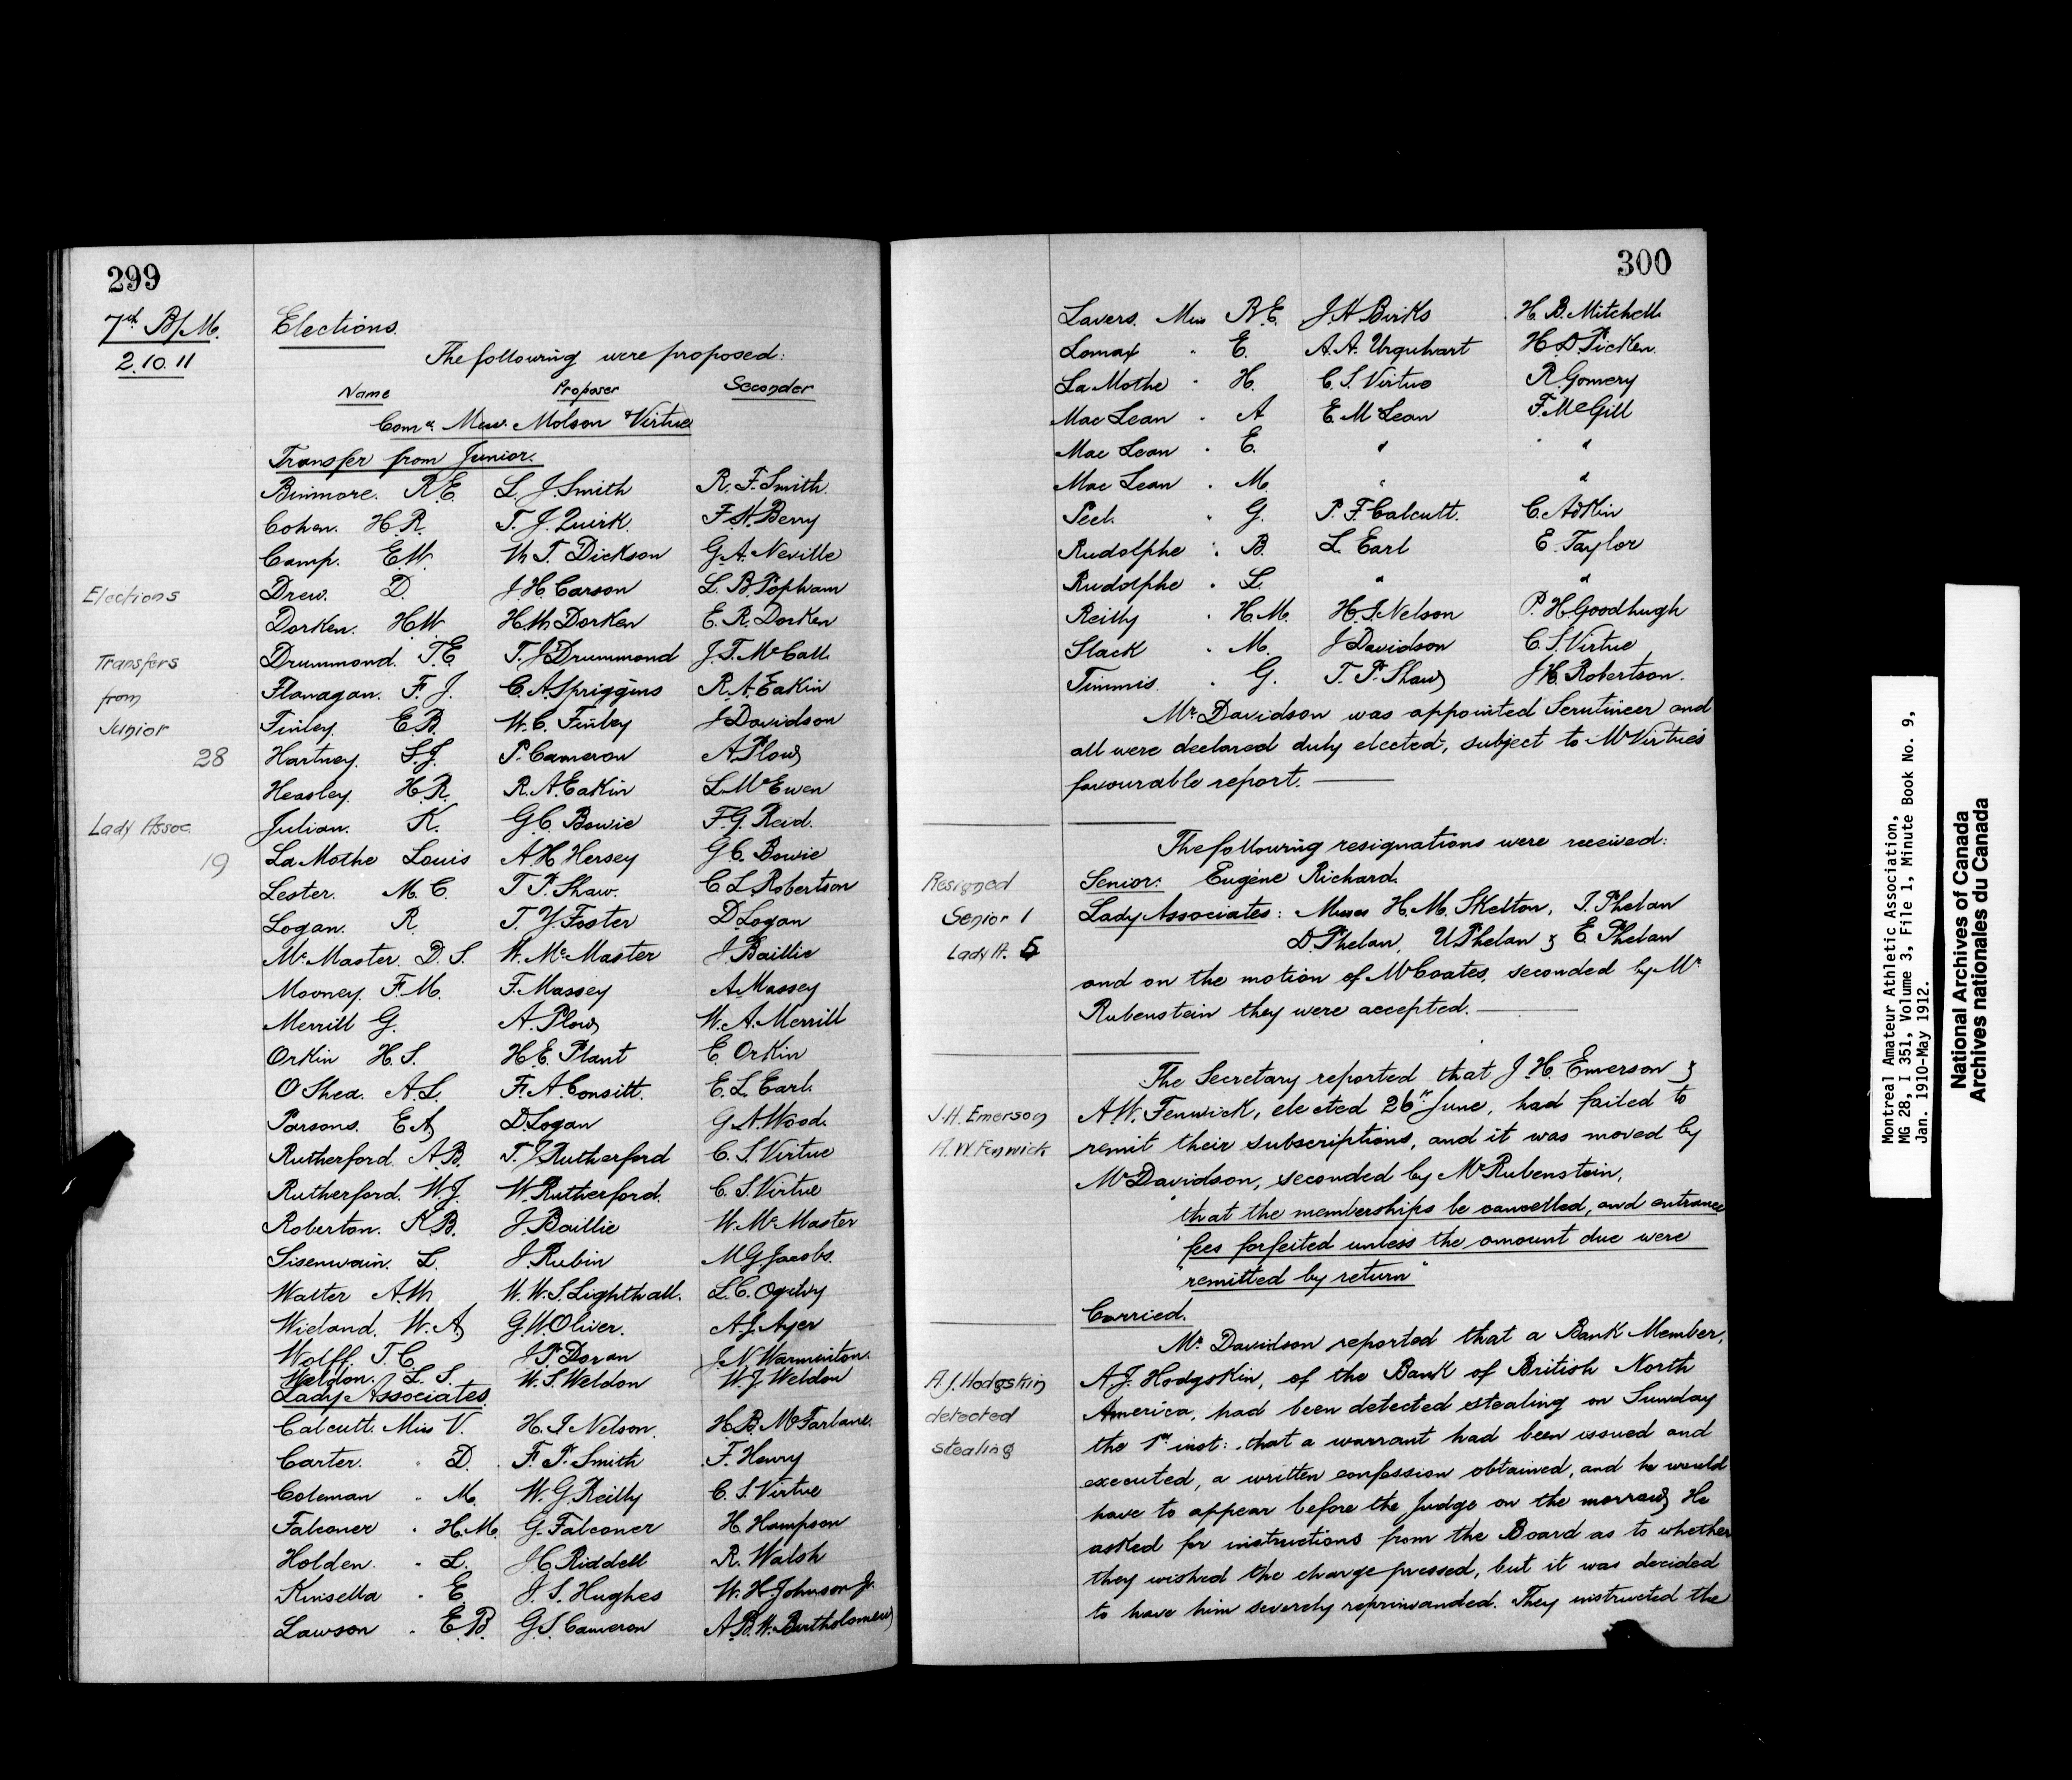 299
7th B/M.
2.10.11
Elections.
The following were proposed:
Name Proposer Seconder
Comee Messrs. Molson & Virtue
Transfer from Junior.
Binmore. R.E. L. J. Smith R. F. Smith.
Cohen. H.R. T. J. Quirk F.H. Berry
Camp. E.W. Wm T. Dickson G.A. Neville
Elections
Drew. D. J.H. Carson L. B. Popham
Dorken. H.W. H.W. Dorken E. R. Dorken
Transfers
from
Junior
28
Drummond. T.E. T.J. Drummond J.T. McCall.
Flanagan. F. J. C. A. Spriggins R.A. Eakin
Finley. E.B. W.C. Finley J Davidson
Hartney. S.J. P. Cameron A. Plow
Heasley. H.R. R. A. Eakin L. McEwen
Lady Assoc.
19
Julian. K. G.C. Bowie F.G. Reid.
La Mothe Louis A.H. Hersey G.C. Bowie
Lester. M.C. T. P. Shaw. C L Robertson
Logan. R. T. Y. Foster D. Logan
McMaster. D.S. W. McMaster J. Baillie
Mooney. F.M. F. Massey A. Massey
Merrill G. A. Plow W. A. Merrill
Orkin H.S. H.E. Plant C. Orkin
O Shea. A.L. F. A Consitt. E. L. Earl.
Parsons. E A D Logan G A. Wood.
Rutherford. A.B. T. J Rutherford C. S. Virtue
Rutherford. W.J. W. Rutherford. C. S. Virtue
Roberton. K.B. J. Baillie W. McMaster
Sisenwain. L. J. Rubin M G Jacobs.
Walter A.W. W. W. S. Lighthall. L.C. Ogilvy
Wieland. W.A G.W. Oliver. A.J. Ayer
Wolff. T.C. J.P. Doran J.N. Warminton.
Weldon. L. S. W. S. Weldon W.J. Weldon
Lady Associates.
Calcutt. Miss V. H. I. Nelson. H.B. McFarlane.
Carter. " D. F. P. Smith F. Henry
Coleman " M. W. G. Reilly C. S. Virtue
Falconer " H.M. G. Falconer H. Hampson
Holden. " L. J.C. Riddell R. Walsh
Kinsella " E. J. S. Hughes W. H Johnson Jr.
Lawson " E.B. G.S. Cameron A.B.W. Bartholomew
300
Lavers. Miss R.E. J.H Birks H. B. Mitchell
Lomax " E. A.A. Urquhart H.D. Picken.
La Mothe " H. C. S. Virtue R. Gomery
Mac Lean " A E. McLean F. McGill
Mac Lean " E. " "
Mac Lean " M. " "
Peel. " G. P. F. Calcutt. C. Adkin
Rudolphe " B. L. Earl E. Taylor
Rudolphe " L. " "
Reilly " H.M. H.I. Nelson P. H. Goodhugh
Slack " M. J Davidson C. S. Virtue
Timmis. " G. T. P. Shaw J.H. Robertson.
Mr Davidson was appointed Scrutineer and
all were declared duly elected, subject to Mr Virtue's
favourable report.
The following resignations were received:
Resigned
Senior 1
Lady A. 5
Senior: Eugène Richard.
Lady Associates: Misses H. M. Skelton, I. Phelan
D. Phelan, U Phelan & E. Phelan
and on the motion of Mr Coates, seconded by Mr
Rubenstein they were accepted.
The Secretary reported that J.H. Emerson &
J.H. Emerson
A.W. Fenwick
A.W. Fenwick, elected 26th June, had failed to
remit their subscriptions, and it was moved by
Mr Davidson, seconded by Mr Rubenstein,
"that the memberships be cancelled, and entrance
"fees forfeited unless the amount due were
"remitted by return"
Carried.
Mr Davidson reported that a Bank Member,
A.J. Hodgskin
detected
stealing
A.J. Hodgskin, of the Bank of British North
America, had been detected stealing on Sunday
the 1st inst: that a warrant had been issued and
executed, a written confession obtained, and he would
have to appear before the Judge on the morrow He
asked for instructions from the Board as to whether
they wished the charge pressed, but it was decided
to have him severely reprimanded. They instructed the
Montreal Amateur Athletic Association,
MG 28, I 351, Volume 3, File 1, Minute Book No. 9,
Jan. 1910-May 1912.
National Archives of Canada
Archives nationales du Canada